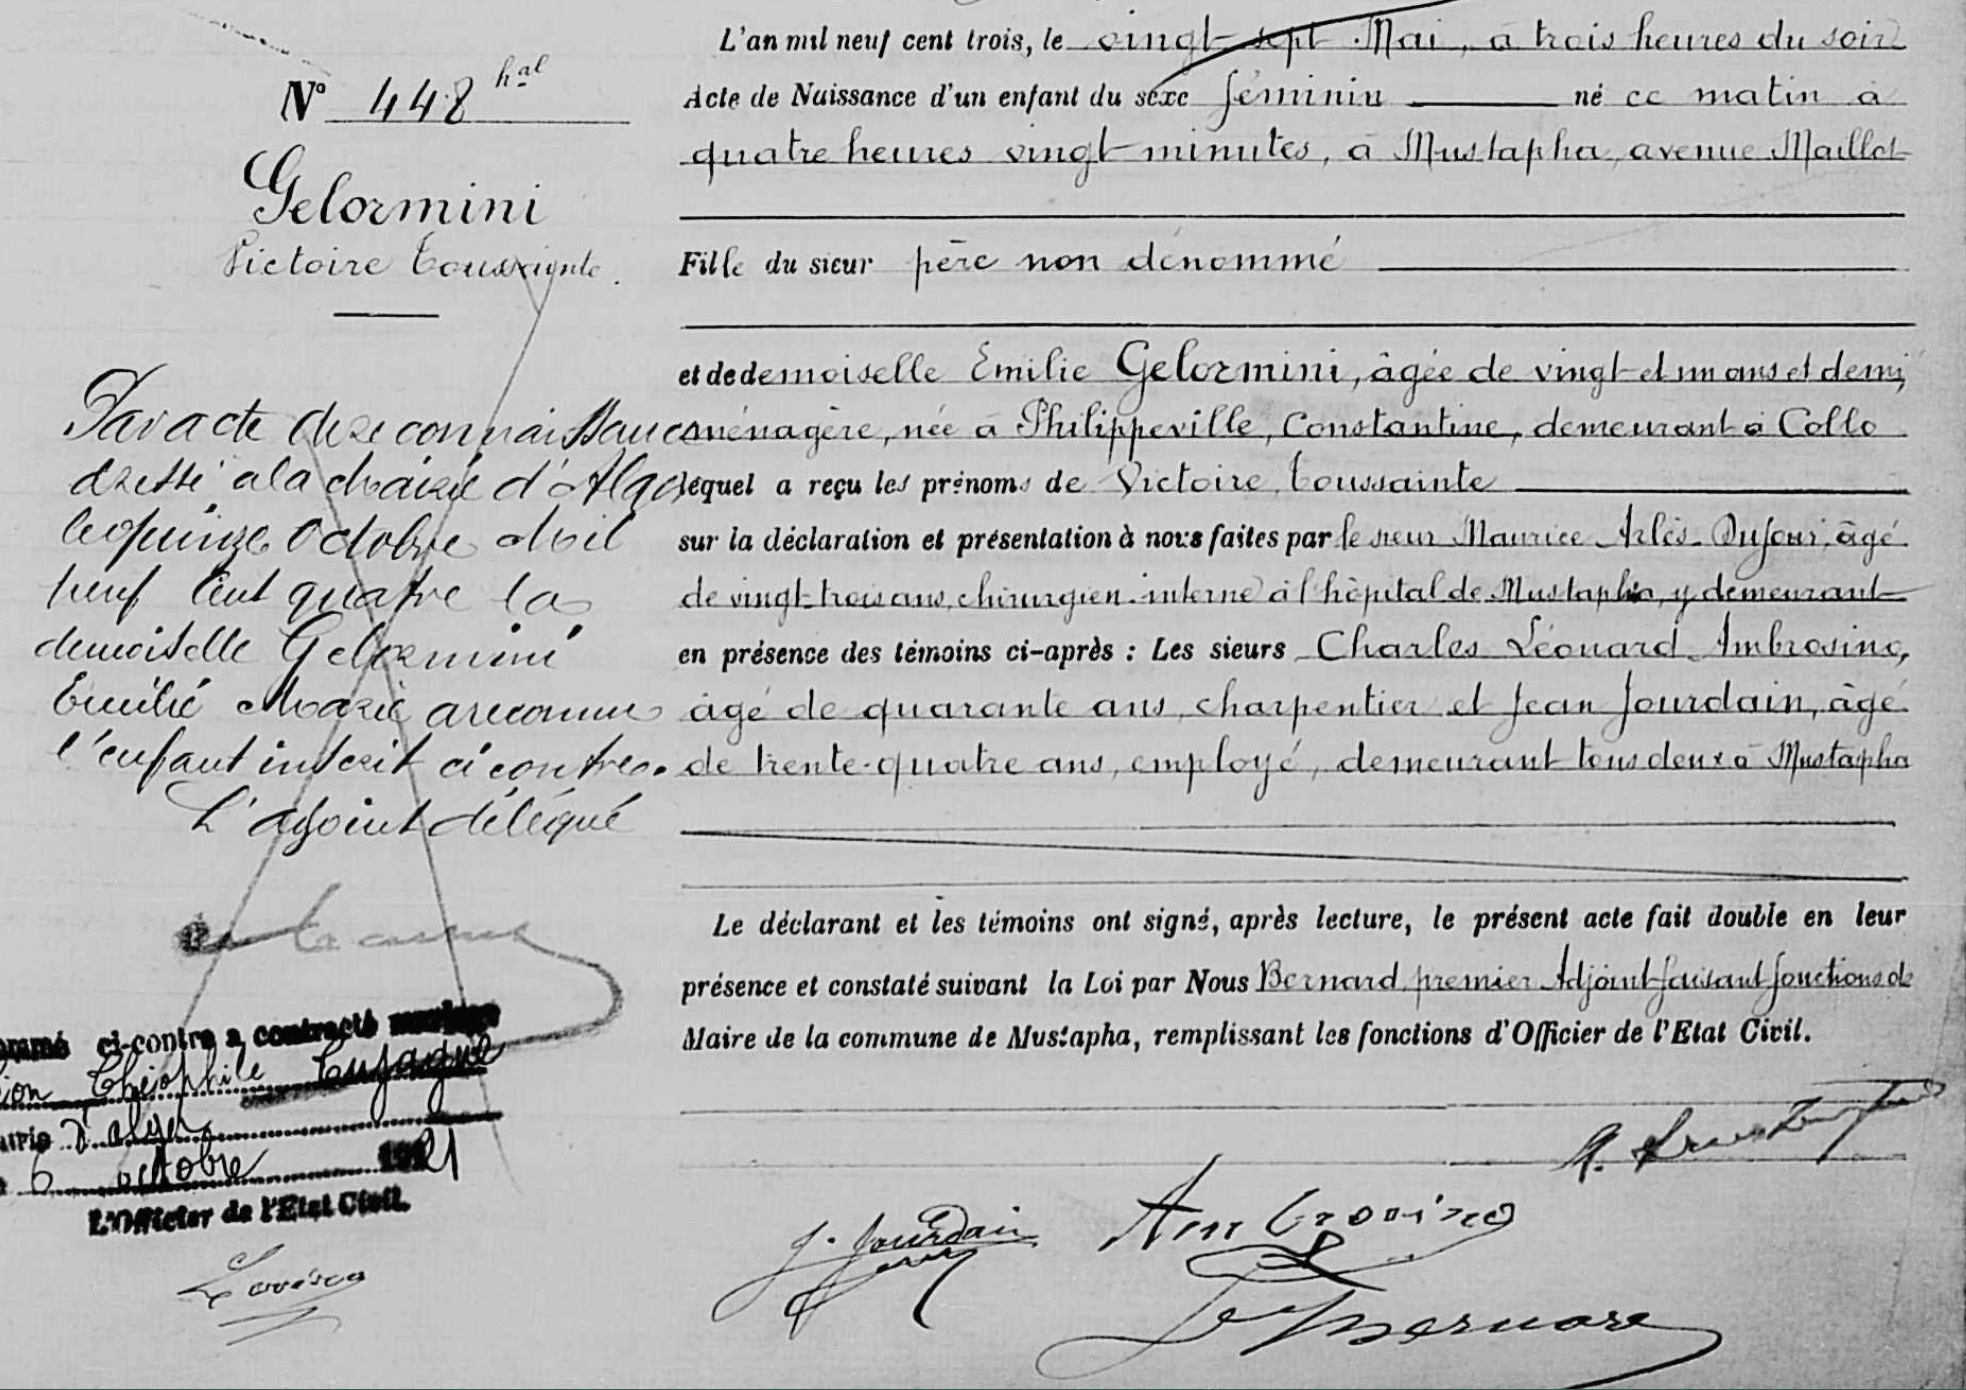 N° 448 hal
Gelormini
Victoire Toussainte.
Par acte de reconnaissance
dressé à la Mairie d'Alger
le quinze Octobre Mil
neuf Cent quatre la
demoiselle Gelormini
Emilie Marie a reconnu
l'enfant inscrit ci contre.
L'adjoint délégué
ommé ci-contre a contracté mariage
ion Théophile
airie d'Alger
6 octobre 1921
L'Officier de l'Etat Civil.
L'an mil neuf cent trois, le vingt-sept Mai, à trois heures du soir
Acte de Naissance d'un enfant du sexe féminin né ce matin à
quatre heures vingt minutes, à Mustapha, avenue Maillot
Fille du sieur père non dénommé
et de demoiselle Emilie Gelormini, âgée de vingt et un ans et demi,
ménagère, née à Philippeville, Constantine, demeurant à Collo
lequel a reçu les prénoms de Victoire, Toussainte
sur la déclaration et présentation à nous faites par le sieur Maurice Arlès-Dufour, âgé
de vingt-trois ans, chirurgien-interne à l'hôpital de Mustapha, y demeurant
en présence des témoins ci-après : Les sieurs Charles Léonard Ambrosino,
âgé de quarante ans, charpentier et Jean Jourdain, âgé
de trente-quatre ans, employé, demeurant tous deux à Mustapha
Le déclarant et les témoins ont signé, après lecture, le présent acte fait double en leur
présence et constaté suivant la Loi par Nous Bernard, premier Adjoint faisant fonctions de
Maire de la commune de Mustapha, remplissant les fonctions d'Officier de l'Etat Civil.
J. Jourdain
Ambrosino
Bernard